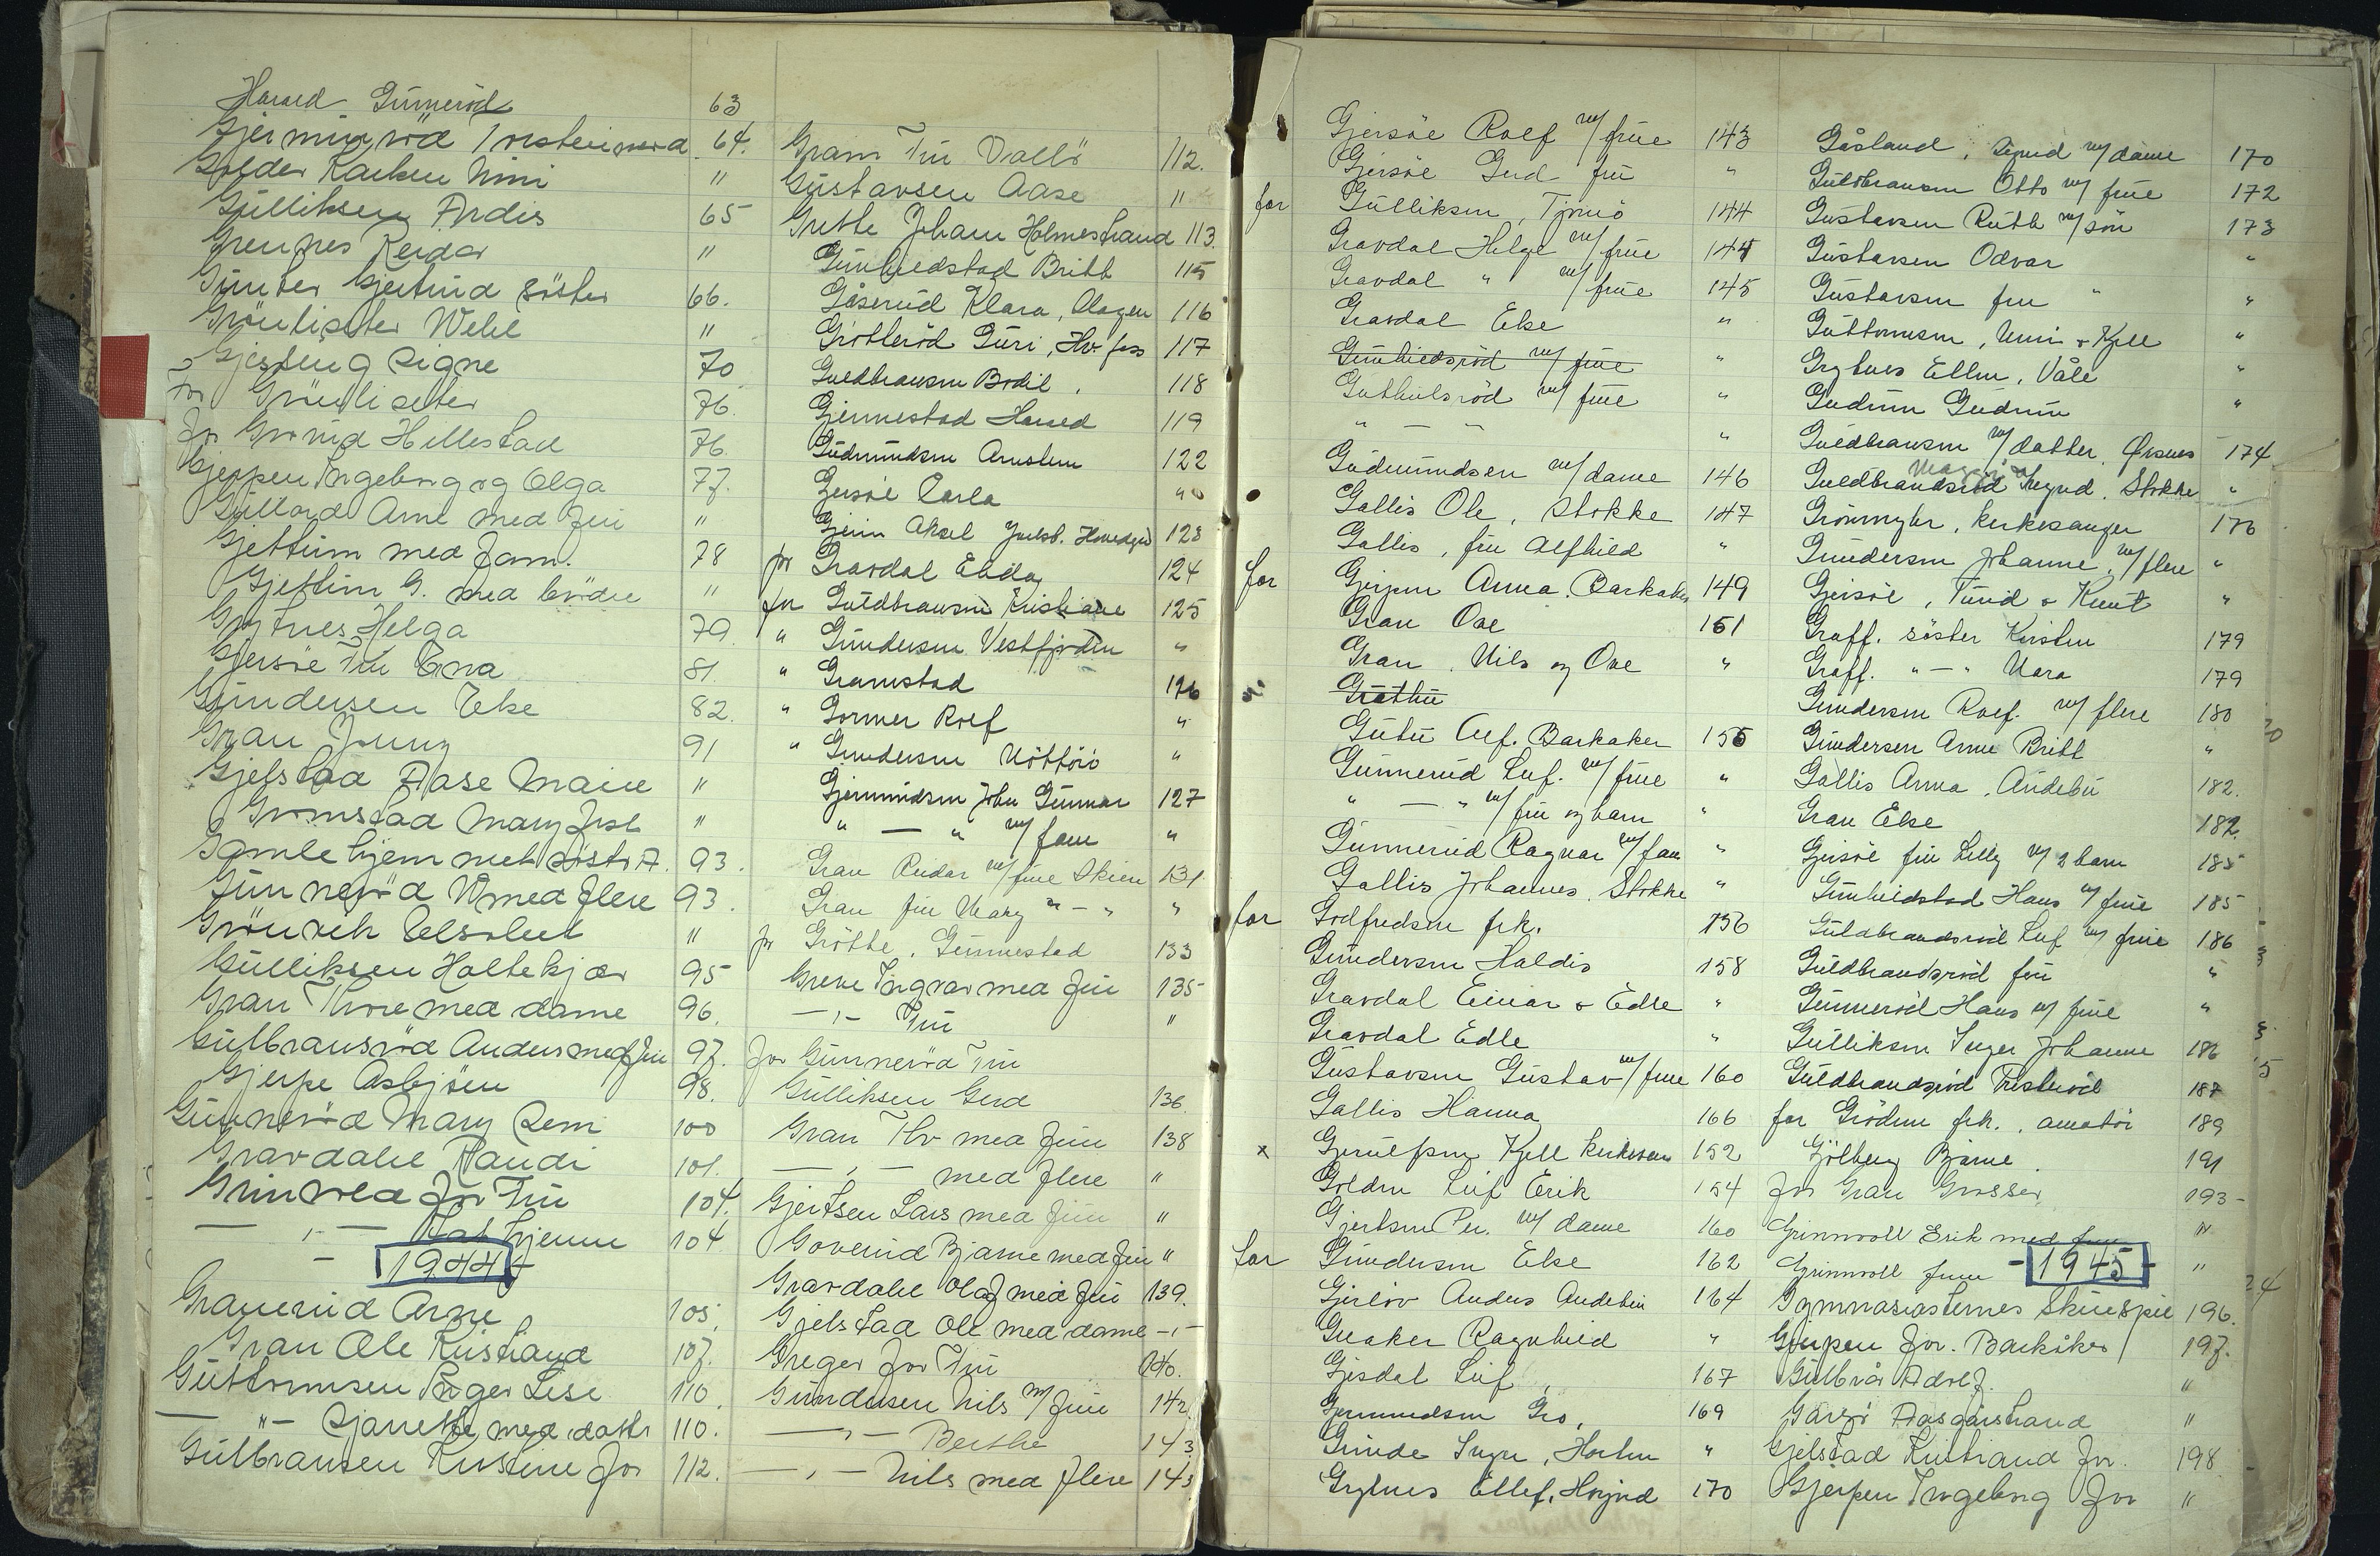 Harald Gunneröd 63
Gjermundröd Torsteinsrød 64.
Golder Karken Unni "
Gulliksen Ardis 65
Grennes Reidar "
Günter Gjertrud söster 66.
Grönliseter Webl "
Gjesting Signe 70
for Grönliseter 76.
for Hillestad 76.
Gjerpen Ingeborg og Olga 77.
Gullord Arne med fru "
Gjettum med fam. 78
Gjettum G. med brödre "
Grytnes Helga 79.
Gjersöe Fru Eva 81.
Gundersen Else 82.
Gran Jonny 91
Gjelstad Aase Marie "
Gromstad Mary "
Gamlehjem met söster A. 93.
Gunneröd W med flere 93.
Grönvik "
Gulliksen Holtekjær 95
Gran Thore med dame 96.
Gulbransröd Anders med fru 97.
Gjerpe Asbjörn 98.
Gunneröd Mary Sem 100
Gravdahl Randi 101.
for Fru 104.
— " — 104
1944
Granerud Arne 105.
Gran Ole Kristrand 107.
Guttormsen Inger Lise 110.
— " — Sjanette med datter 110.
Gulbransen Kristine for 112.
Gram Fru Vallö 112.
Gustavsen Aase "
Grette Johan Holmestrand 113.
Gunhildstad Britt 115
Gåserud Klara, Slagen 116
Grötteröd Guri, Hv. foss 117
Guldbransen Bodil 118
Gjennestad Harald 119
Gudmundsen Arnsten 122
Gjersöe Carla "
Gjein Aksel 123
for Gravdal Ebda 124
for Guldbransen Kristiane 125
" Gundersen Vestfjorden "
" Gramstad 126
" Gormer Rolf "
" Gundersen Nötterö "
Gjermundsen John Gunnar 127
" — " m/ fam "
Gran Reidar m/ frue Skien 131
Gran fru Mary " — " "
for Grötte, Gennestad 133
Greve Ingvar med fru 135
— " — Fru "
for Gunneröd Fru
Gulliksen Gerd 136.
Gran Thv med frue 138
— " — med flere "
Gjertsen Lars med frue "
Goverud Bjarne med fru "
Gravdahl Olaf med fru 139.
Gjelstad Ole med dame — " —
Greger for Fru 140.
Gundersen Nils m/ frue 142
— " — Berthe 143
— " — Nils med flere 143
Gjersöe Rolf m/ frue 143
Gjersöe Gerd fru "
for Gulliksen, Tjömö 144
Gravdal Helge m/ frue 144
Gravdal " m/ frue 145
Gravdal Else "
Gunhildsröd m/ frue "
Guthulsröd m/ frue "
" — " "
Gudmundsen m/ dame 146
Gallis Ole, Stokke 147
Gallis, fru Alfhild "
for Gjerpen Anna. Barkaker 149
Gran Ove 151
Gran, Nils og Ove "
Gruthu
Gutu Alf. Barkaker 155
Gunnerud Leif. m/ frue "
" — " m/ fru og barn "
Gunnerud Ragnar m/ fam "
Gallis Johannes, Stokke "
for Godfredsen frk. 156
Gundersen Haldis 158
Gravdal Einar & Edle "
Gravdal Edle "
Gustavsen Gustav m/ frue 160
Gallis Hanna 166
x Gjerulfsen Kjell 152
Golden Leif Erik 154
Gjertsen Per. m/ dame 160
for Gundersen Else 162
Gjerlöv Anders Andebu 164
Greaker Ragnhild "
Gjesdal Leif 167
Gjermundsen Gro, 169
Grinde Inger, Horten "
Grytnes Ellef, Höyord 170
Gåsland, Sigurd m/ dame 170
Guldbransen Otto m/ frue 172
Gustavsen Ruth m/ sön 173
Gustavsen Odvar "
Gustavsen fru " "
Guttormsen, Unni & Kjell "
Grytnes Ellen, Våle "
Gudrun Gudrun "
Guldbransen m/ datter, Örsnes 174
Guldbrandsröd, Stokke "
Grönmyhr, kirkesanger 176
Gundersen Johanne, m/ flere "
Gjersöe, Turid & Knut "
Graff. söster Kirsten 179
Graff. " — " Nora 179
Gundersen Rolf. m/ flere 180
Gundersen Anne Britt "
Gallis Anna, Andebu 182.
Gran Else 182.
Gjersöe fru Lilly m/ 2 barn 185
Gunhildstad Hans m/ frue 185
Guldbrandsröd Leif m/ frue 186
Guldbrandsröd fru "
Gunneröd Hans m/ frue "
Gulliksen Inger Johanne 186
Guldbrandsröd 187
for Gröden frk., amatör 189
Gjölberg Bjarne 191
for Gran Grosser 193
Grinnvoll Erik med frue "
Grinnvoll frue "
-1945-
Gymnasiasternes Skuespil 196.
Gjerpen for. Barkåker 197.
Gulbrå Adolf. "
Garsö Aasgårstrand "
Gjelstad for. 198
Gjerpen Ingeborg for "